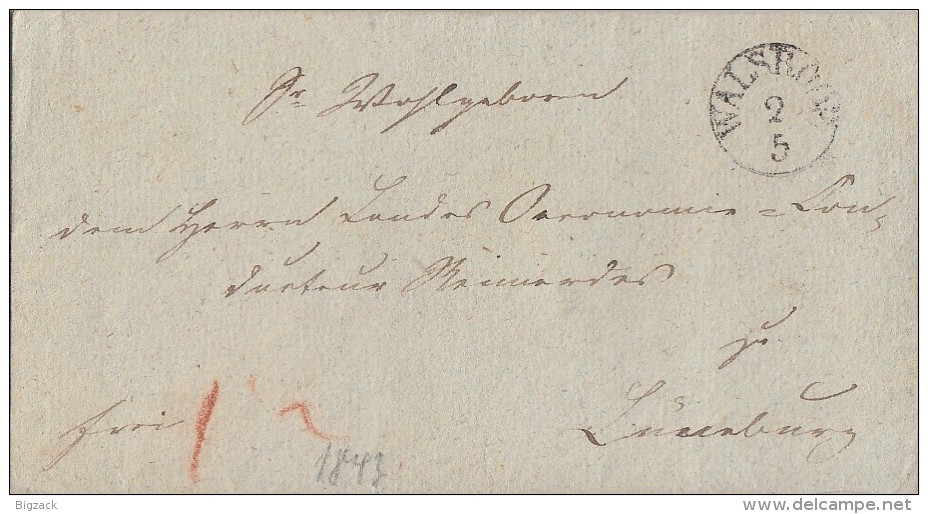 WALSRODE
2
5
Sr Wohlgeboren
dem Herrn Landes Oeconomie=Con-
ducteur Meinerdes
zu
Lüneburg
frei
1843
Bigzack
www.delcampe.net